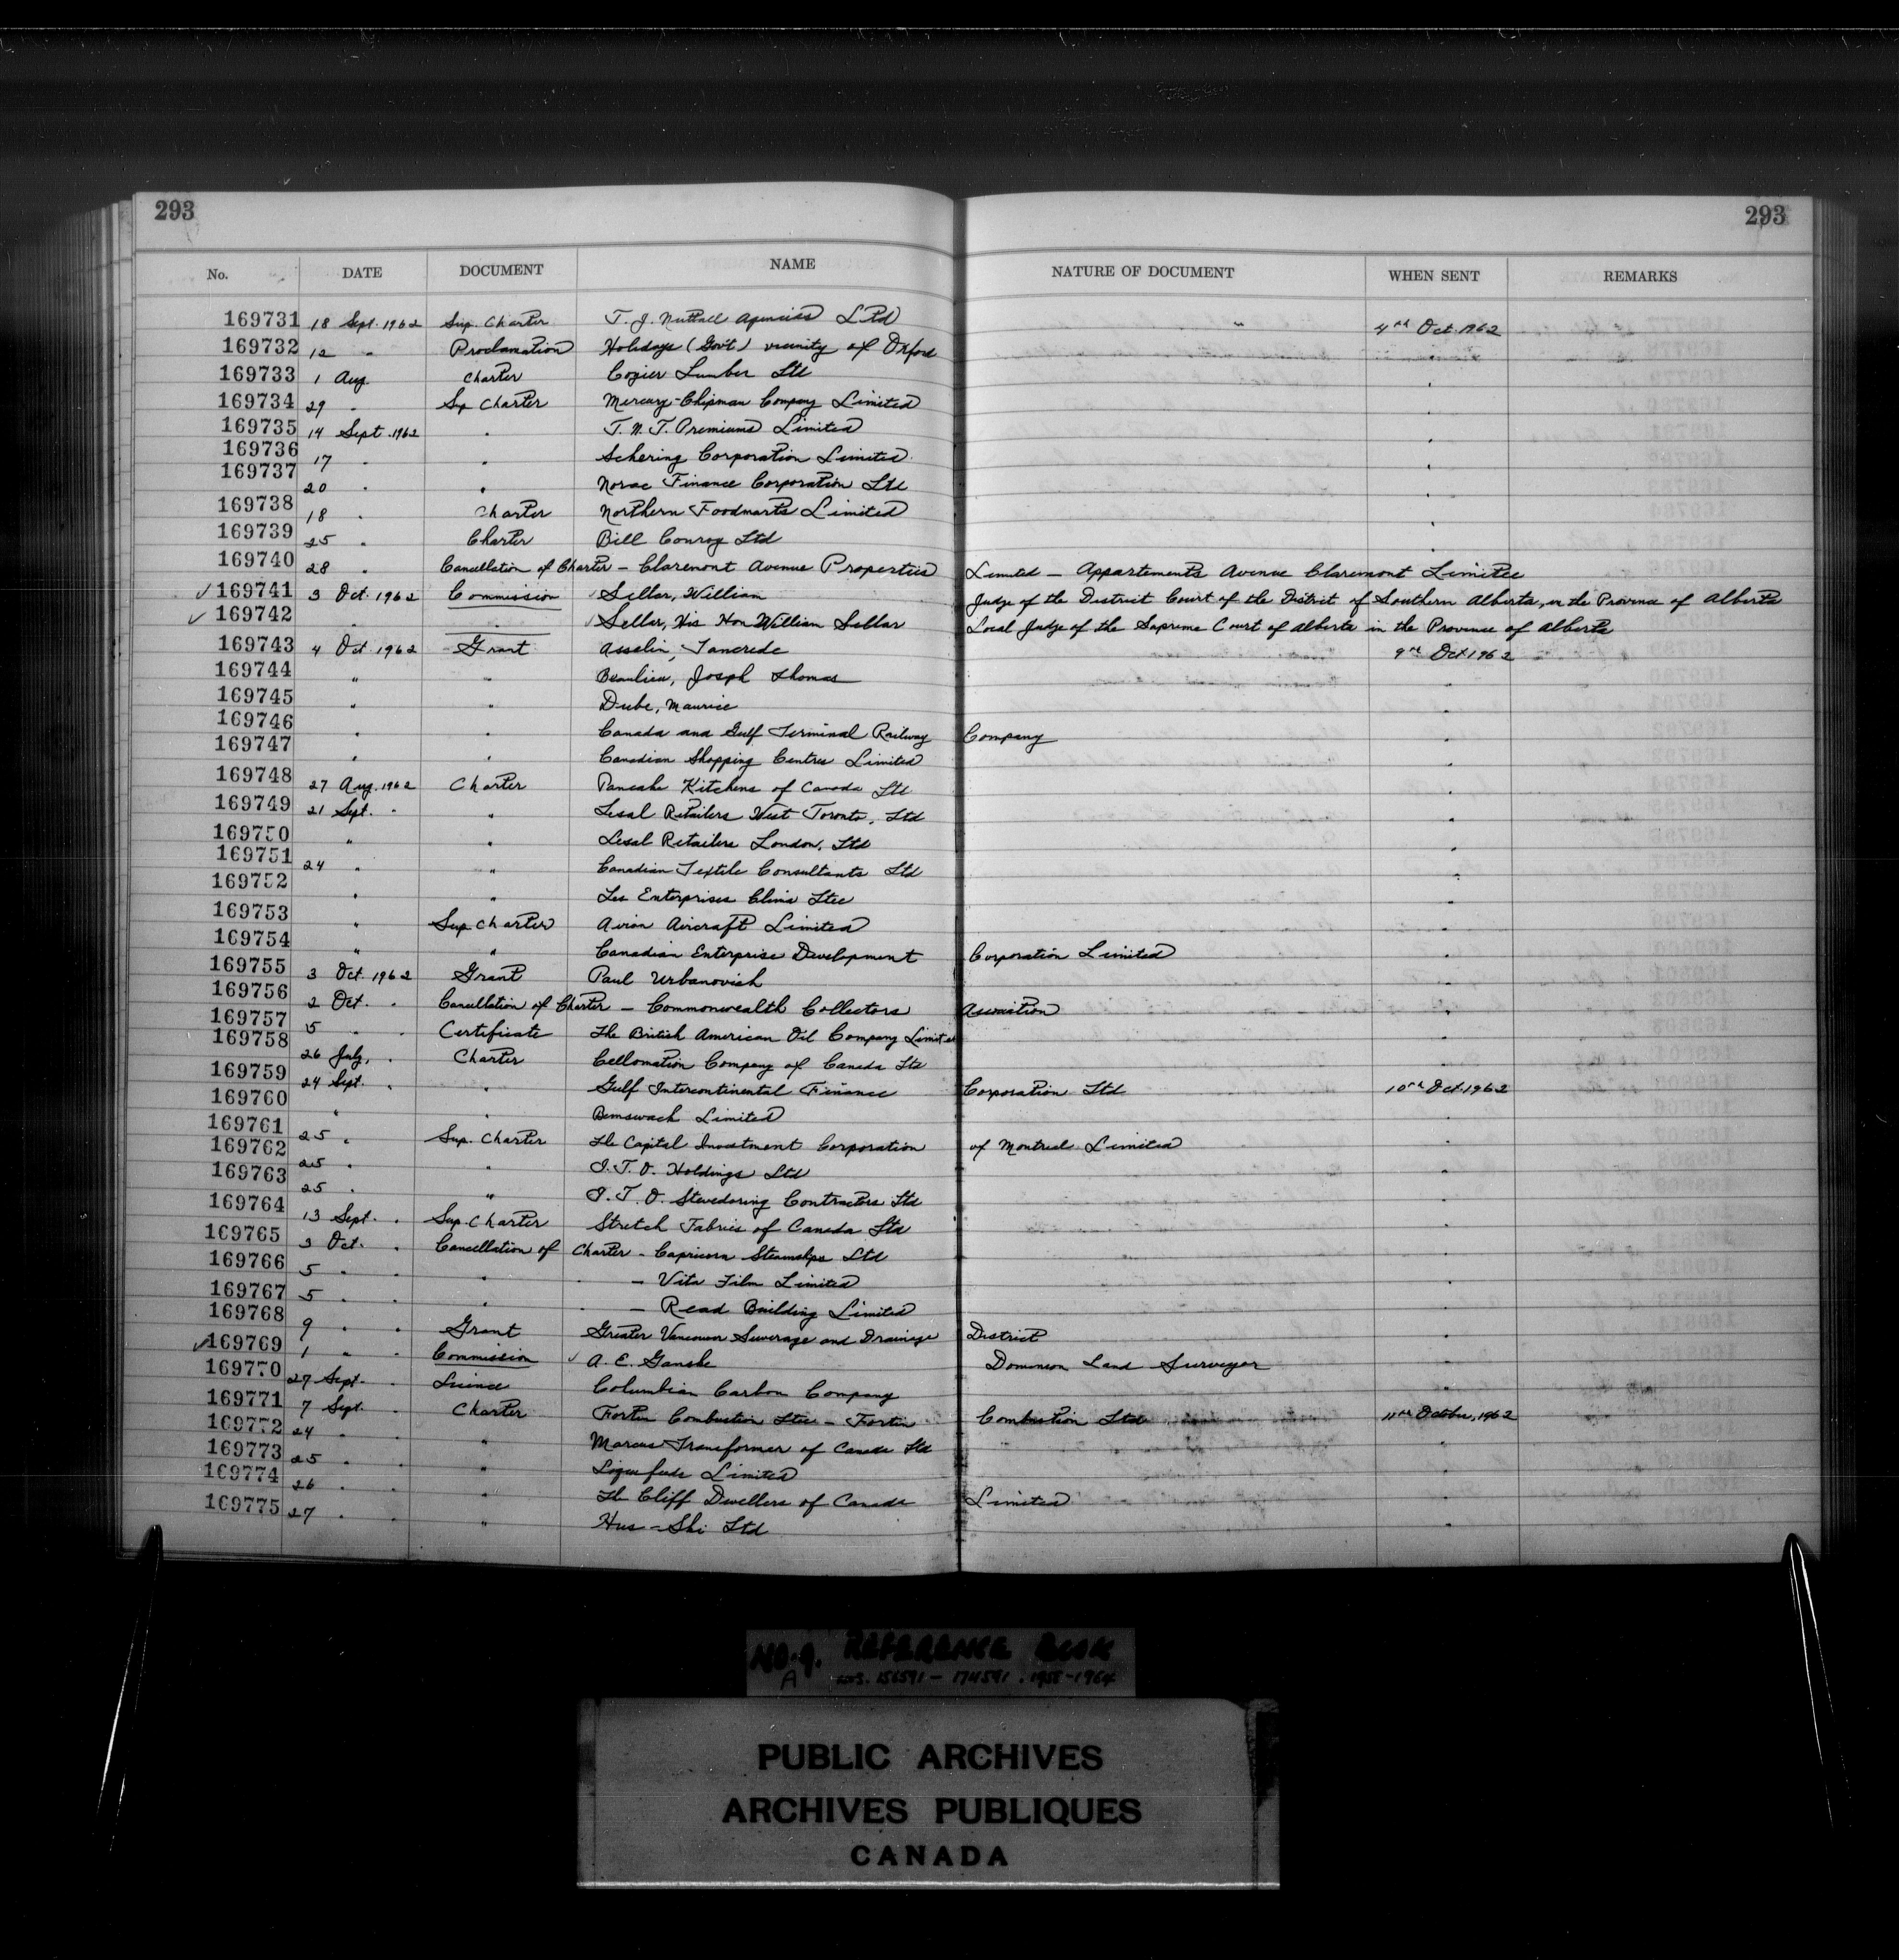 293 293
No. DATE DOCUMENT NAME NATURE OF DOCUMENT WHEN SENT REMARKS
169731 18 Sept. 1962 Sup. Charter T. J. Nuttall Agencies Ltd " 4th Oct. 1962
169732 12 " Proclamation Holidays (Gov't) vicinity of Oxford
169733 1 Aug Charter Cozier Lumber Ltd "
169734 29 " Sup Charter Mercury-Chipman Company Limited "
169735 14 Sept. 1962 " T.N.T. Premiums Limited "
169736 17 " " Schering Corporation Limited "
169737 20 " " Norac Finance Corporation Ltd "
169738 18 " Charter Northern Foodmarts Limited "
169739 25 " Charter Bill Conroy Ltd "
169740 28 " Cancellation of Charter - Claremont Avenue Properties Limited - Appartements Avenue Claremont Limitee
✓ 169741 3 Oct. 1962 Commission ✓ Sellar, William Judge of the District Court of the District of Southern Alberta, in the Province of Alberta
✓ 169742 " " ✓ Sellar, His Hon William Sellar Local Judge of the Supreme Court of Alberta in the Province of Alberta
169743 4 Oct. 1962 Grant Asselin, Tancrede 9th Oct 1962
169744 " " Beaulieu, Joseph Thomas "
169745 " " Dube, Maurice "
169746 " " Canada and Gulf Terminal Railway Company "
169747 " " Canadian Shopping Centres Limited "
169748 27 Aug. 1962 Charter Pancake Kitchens of Canada Ltd "
169749 21 Sept. " " Lesal Retailers West Toronto, Ltd "
169750 " " Lesal Retailers London, Ltd "
169751 24 " " Canadian Textile Consultants Ltd "
169752 " " Les Enterprises Clivia Ltee "
169753 " Sup Charter Avion Aircraft Limited "
169754 " " Canadian Enterprise Development Corporation Limited "
169755 3 Oct. 1962 Grant Paul Urbanovich "
169756 2 Oct. " Cancellation of Charter - Commonwealth Collectors Association "
169757 5 " " Certificate The British American Oil Company Limited "
169758 26 July, " Charter Cellomation Company of Canada Ltd "
169759 24 Sept. " " Gulf Intercontinental Finance Corporation Ltd 10th Oct. 1962
169760 " " Limited "
169761 25 " Sup. Charter The Capital Investment Corporation of Montreal Limited "
169762 25 " " I.T.O. Holdings Ltd "
169763 25 " " I.T.O. Stevedoring Contractors Ltd "
169764 13 Sept. " Sup. Charter Stretch Fabrics of Canada Ltd "
169765 3 Oct. " Cancellation of Charter - Capricorn Steamships Ltd "
169766 5 " " " " - Vita Film Limited "
169767 5 " " " " - Read Building Limited "
169768 9 " " Grant Greater Vancouver Sewerage and Drainage District "
✓ 169769 1 " " Commission ✓ A. E. Ganske Dominion Land Surveyor "
169770 27 Sept. " Licence Columbian Carbon Company "
169771 7 Sept. " Charter Fortin Combustion Ltee - Fortin Combustion Ltd 11th October, 1962
169772 24 " " " Marcus Transformer of Canada Ltd "
169773 25 " " " Limited "
169774 26 " " " The Cliff Dwellers of Canada Limited "
169775 27 " " " Hus-Ski Ltd "
NO. 9. REFERENCE BOOK
A NOS. 156591 - 174591. 1958-1964
PUBLIC ARCHIVES
ARCHIVES PUBLIQUES
CANADA